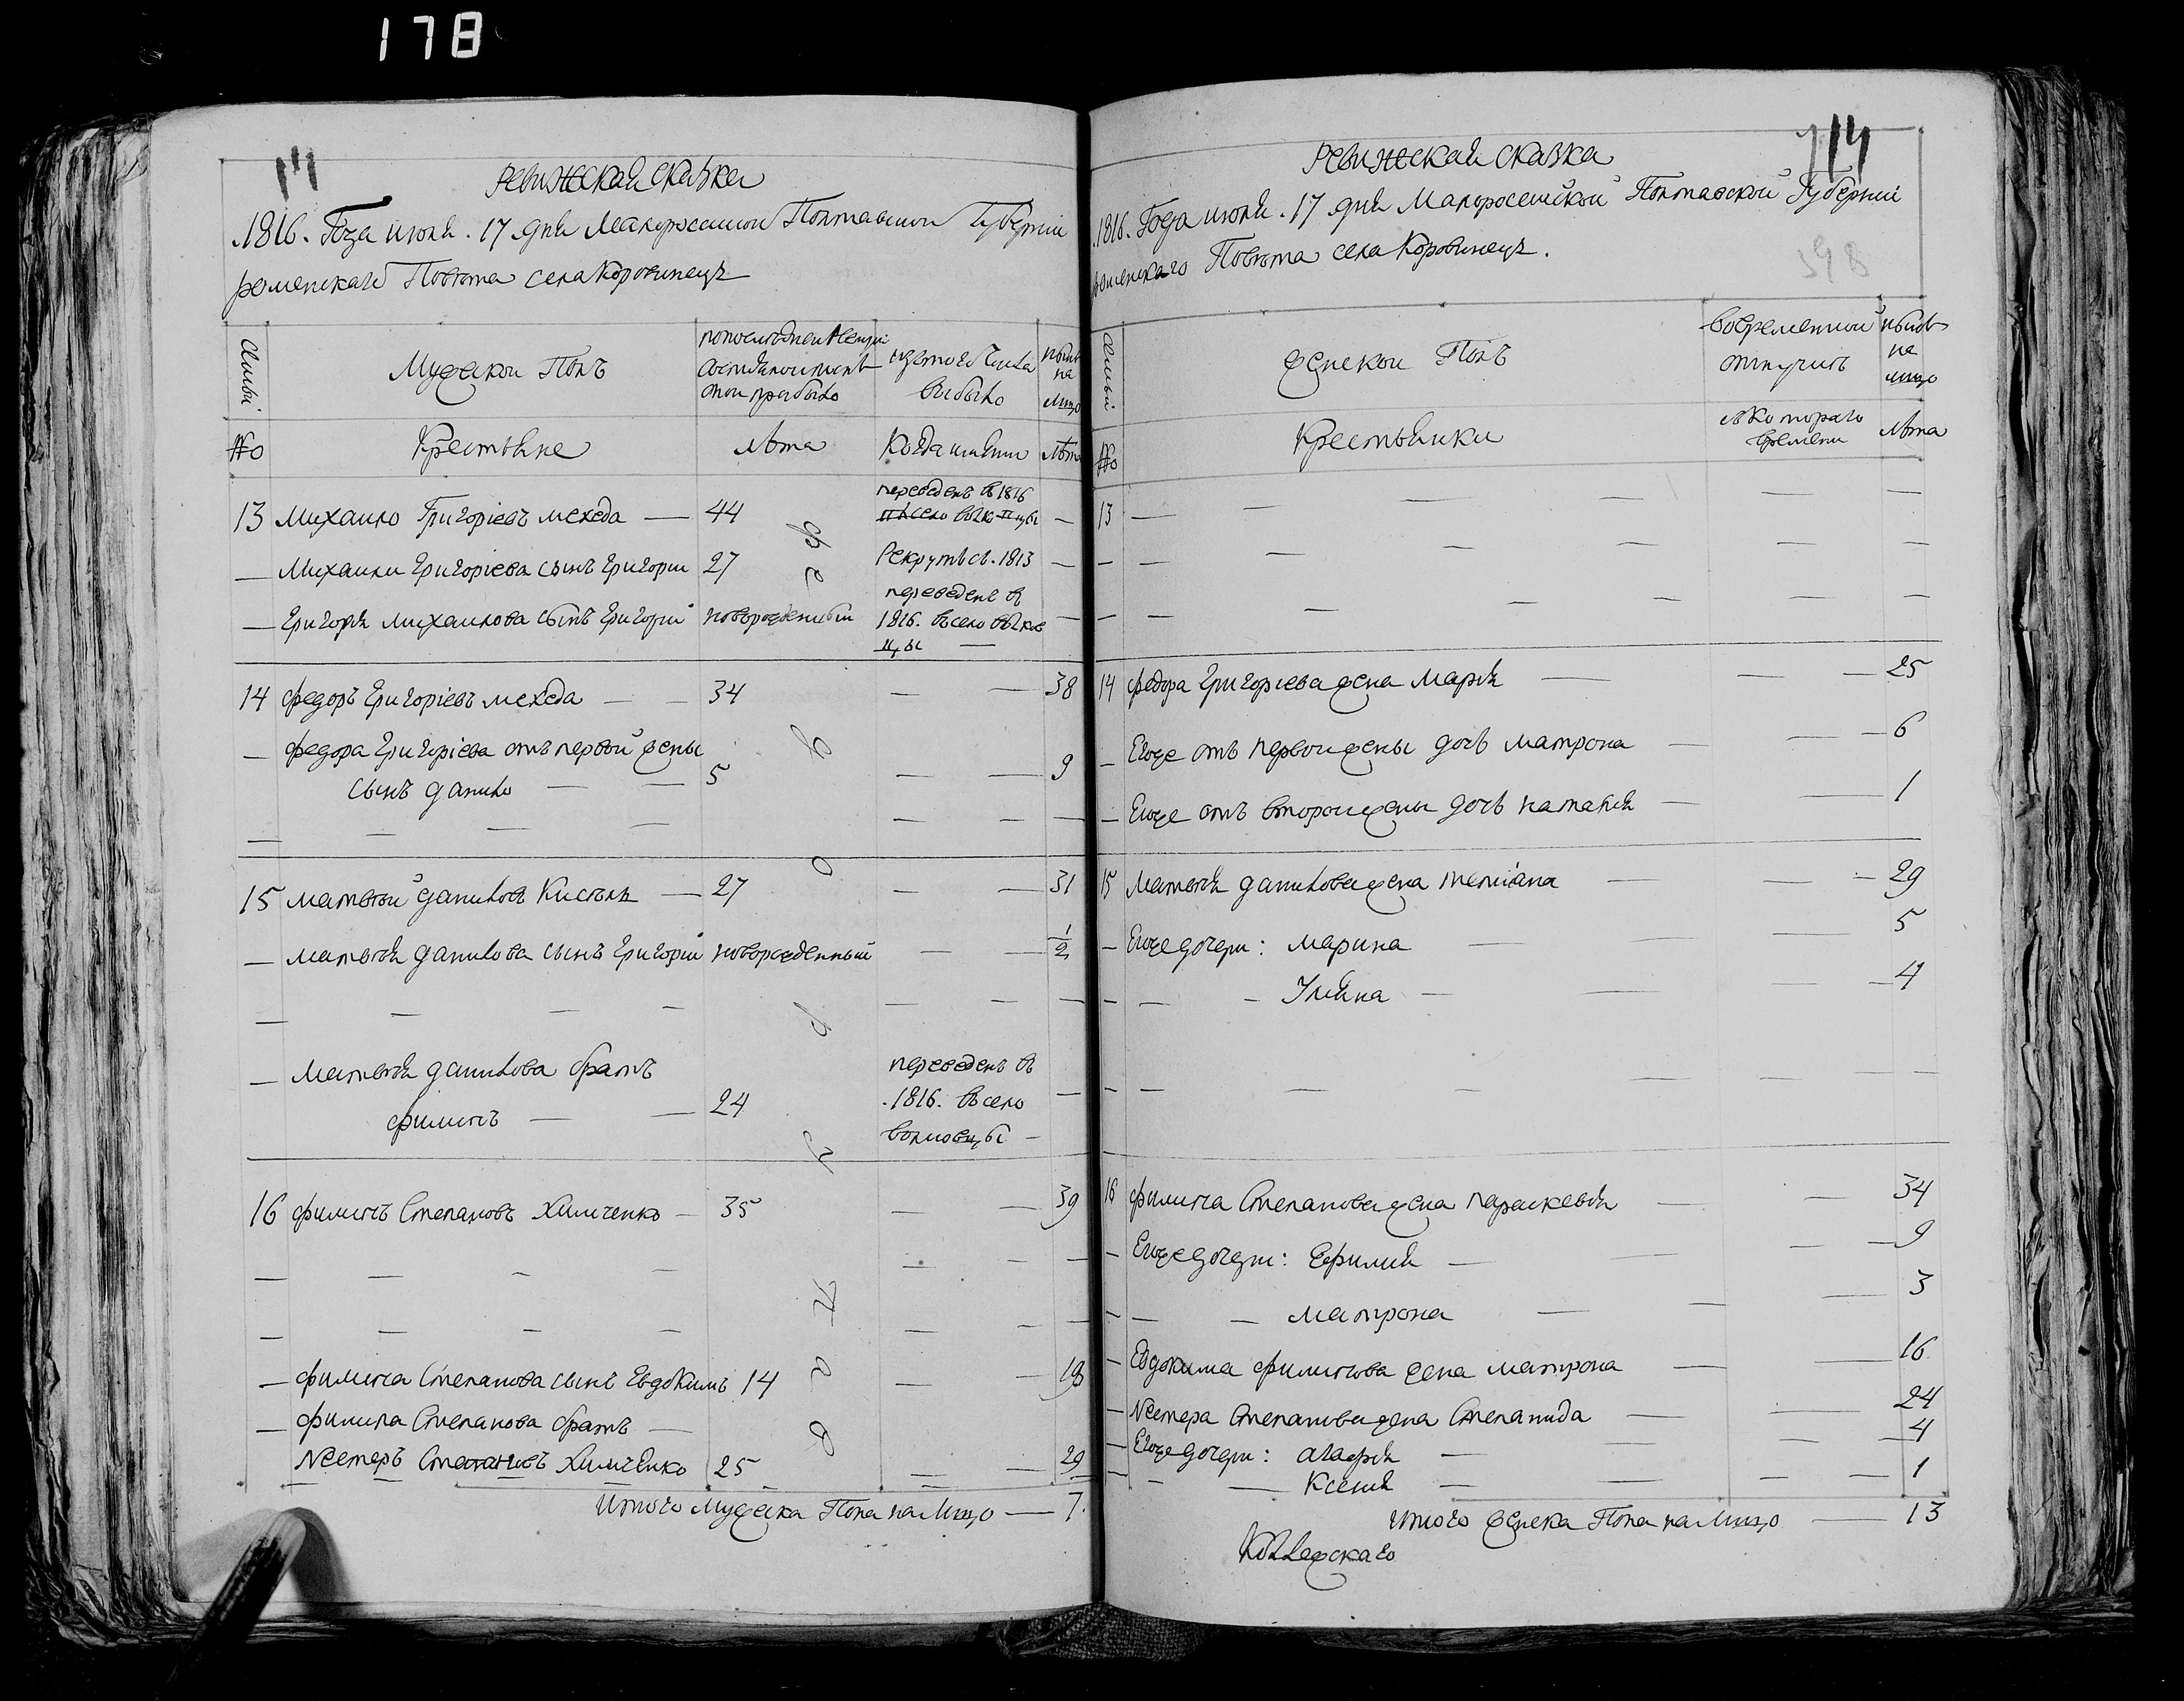 178
14
Ревижская сказка
1816. Года июля. 17 дня Малоросийской Полтавской Губернии
роменского Повѣта села Коровинецъ
Семьи
Мужеской Полъ
по последней ревизии
состояло и после
того прибыло
изтого числа
выбыло
ныне
на
лицо
№
Крестьяне
лѣта
Когда имянно
лѣта
13 Михаило Григоріевъ мехеда — 44
переведенъ в 1816
— —
— Михаила Григоріева сынъ Григорій 27 Рекрутъ съ. 1813 —
— Григорія михаилова сынъ Григорій новорожденный
переведенъ въ
1816. въ село вѣлков
цы — —
14 федоръ Григоріевъ мехеда — — 34 — — 38
— федора Григоріева отъ первой жены
сынъ данило — — 5 — — 9
— — — — — — —
15 матвѣй даниловъ Кисѣль — 27 — — 31
— матвѣя данилова сынъ Григорій новорожденный — — 1/2
— — — — — — —
— матвѣя данилова братъ
филипъ — — 24
переведенъ въ
.1816. въ село
волковцы — —
16 филипъ Степановъ Химченко — 35 — — 39
— — — — — — —
— — — — — — —
— филипа Степанова сынъ Евдокимъ 14 — — 18
— филипа Степанова братъ —
Нестеръ Степановъ Химченко 25 — — 29
Итого Мужеска Пола на лицо — 7.
114
398
Ревижская сказка
.1816. Года июля. 17 дня Малоросийской Полтавской Губерніи
роменскаго Повѣта села Коровинецъ.
Семьи
Женской Полъ
во временной
отлучкѣ
нынѣ
на
лицо
№
Крестьянки
съ котораго
времени
лѣта
13 — — — — —
— — — — — — —
— — — — — — —
14 федора Григоріева жена Марія — — — 25
— Егоже отъ первой жены дочь матрона — — — 6
— Егоже отъ второй жены дочь наталія — — 1
15 Матвѣя данилова жена тетіана — — — 29
— Егоже дочери: марина — — — 5
— — — Уліяна — — — — 4
— — — — — — —
16 филипа Степанова жена параскевія — — 34
— Егоже дочери: Ефимія — — — — 9
— — — матрона — — — 3
— Евдокима филипова жена матрона — — 16
— Нестера Степанова жена Степанида — — 24
— Егоже дочери: агафія — — — — 4
— — — Ксенія — — — — 1
Итого женска Пола на лицо — 13